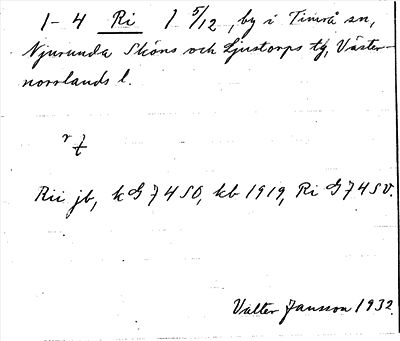 1-4 Ri 1 5/12, by i Timrå sn,
Njurunda Sköns och Ljustorps tg, Väster-
norrlands l.
r t
Rii jb, k G 7 4 SO, kb 1919, Ri G 7 4 SV.
Valter Jansson 1932.